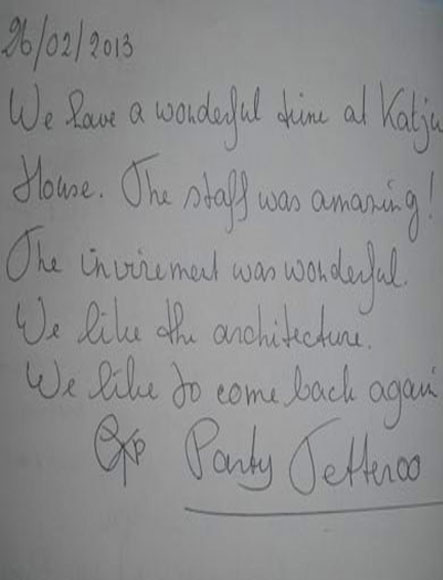 26/02/2013
We have a wonderful time at Katju
House. The staff was amazing!
The invirement was wonderful.
We like the architecture.
We like to come back again
Party Jetteroo